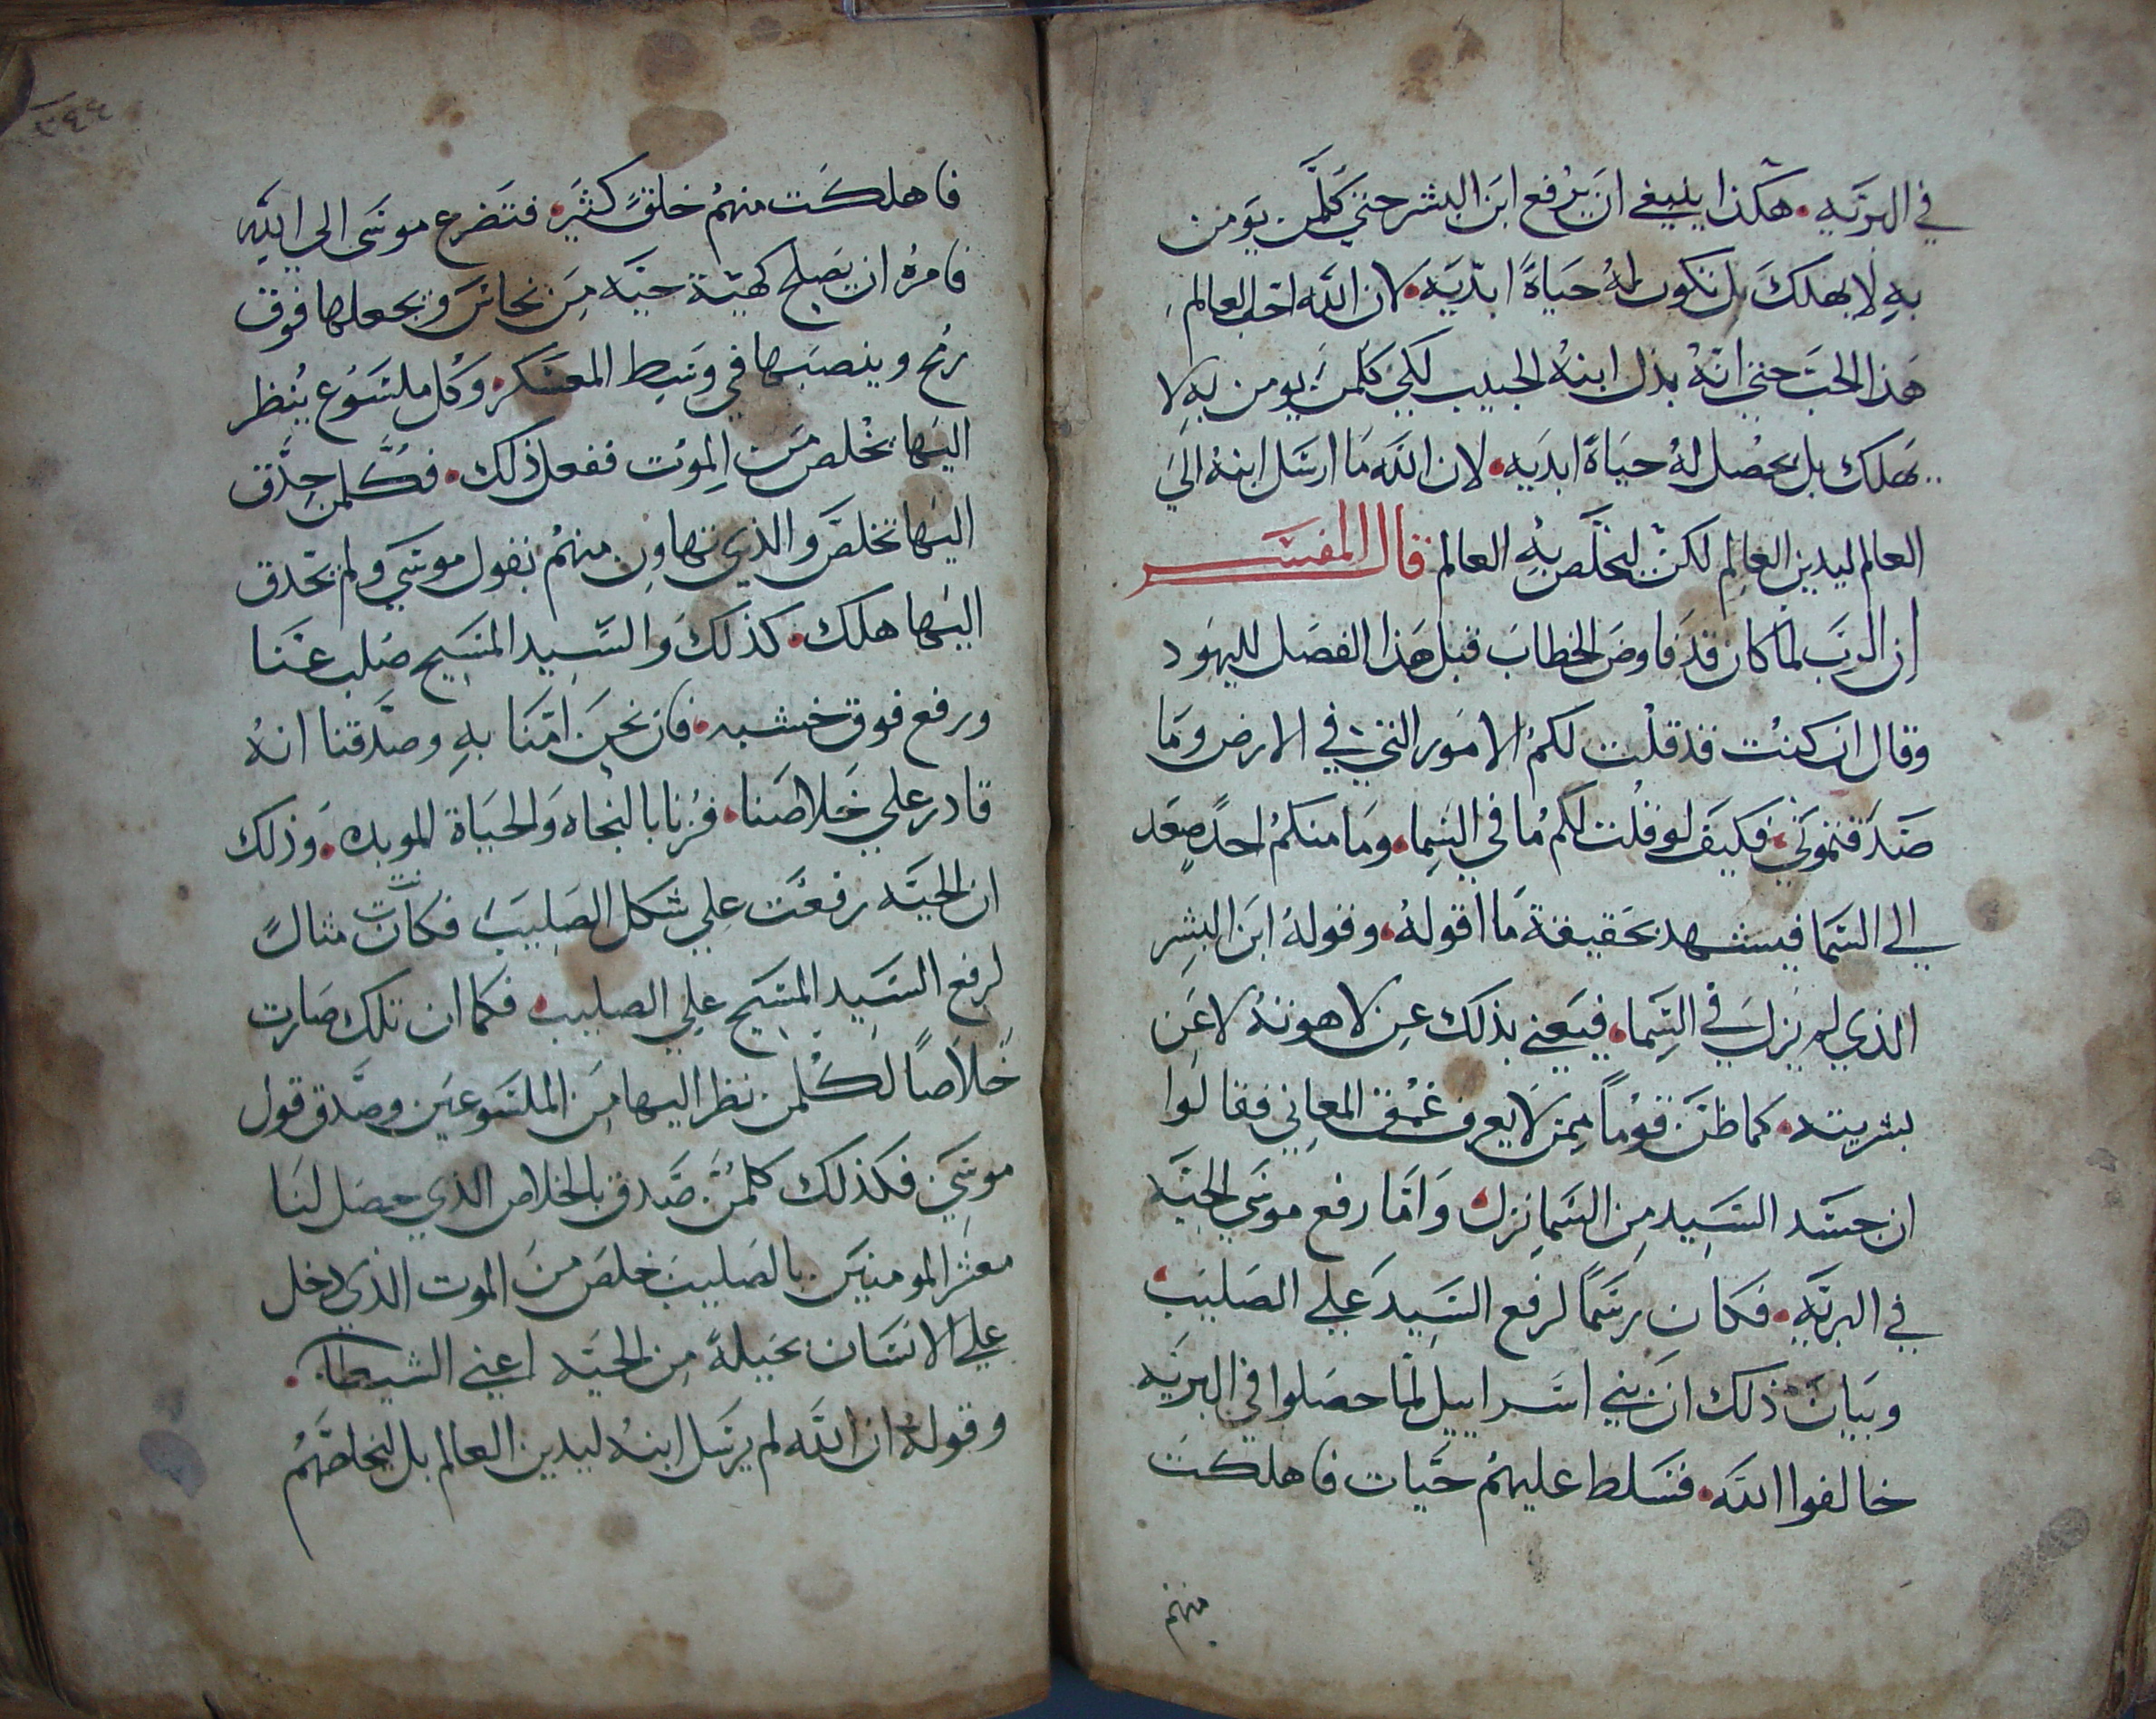 في البريه. هكذا ينبغي ان يرفع ابن البشر حتي كلمن يومن
به لا يهلك بل تكون له حياة ابديه. لان الله احب العالم
هذا الحب حتي انه بذل ابنه الحبيب لكي كلمن يومن به لا
يهلك بل يحصل له حياة ابديه. لان الله ما ارسل ابنه الي
العالم ليدين العالم لكن ليخلص به العالم قال المفسر
ان الرب لما كان قد فاوض الخطاب قبل هذا الفصل لليهود
وقال ان كنت قد قلت لكم الامور التي في الارض وما
صدقتموني. فكيف لو قلت لكم ما في السما. وما منكم احد صعد
الي السما فيشهد بحقيقة ما اقوله. وقوله ابن البشر
الذي لم يزل في السما. فيعني بذلك عن لاهوته لا عن
بشريته. كما ظن قوما ممن لا يعرف غمق المعاني فقالوا
ان جسد السيد من السما نزل. واما رفع موسي الحيه
في البريه. فكان رسما لرفع السيد علي الصليب.
وبيان ذلك ان بني اسراييل لما حصلوا في البريه
خالفوا الله. فتسلط عليهم حيات فاهلكت
منهم
٢٩٤
فاهلكت منهم خلق كثير. فتضرع موسي الي الله
فامره ان يصلح كهيئة حيه من نحاس ويجعلها فوق
رمح وينصبها في وسط المعسكر. وكل ملسوع ينظر
اليها يخلص من الموت ففعل ذلك. فكلمن حدق
اليها تخلص والذي تهاون منهم بقول موسي ولم يحدق
اليها هلك. كذلك والسيد المسيح صلب عنا
ورفع فوق خشبه. فان نحن امنا به وصدقنا انه
قادر علي خلاصنا. فزنا بالنجاه والحياة الموبده. وذلك
ان الحيه رفعت علي شكل الصليب فكانت مثالا
لرفع السيد المسيح علي الصليب. فكما ان تلك صارت
خلاصا لكلمن نظر اليها من الملسوعين وصدق قول
موسي فكذلك كلمن صدق بالخلاص الذي حصل لنا
معشر المومنين بالصليب خلص من الموت الذي دخل
علي الانسان بحيلة من الحيه اعني الشيطان.
وقوله ان الله لم يرسل ابنه ليدين العالم بل ليخلصهم